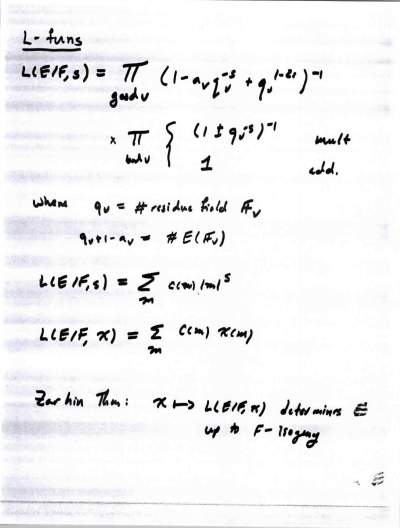 L-funs
L(E/F,s) = ∏ (1 - a_v q_v^{-s} + q_v^{1-2s})^{-1}
good v
× ∏ { (1 ± q_v^{-s})^{-1} mult
bad v 1 add.
where q_v = # residue field F_v
q_v+1-a_v = # E(F_v)
L(E/F,s) = Σ_m c(m) |m|^s
L(E/F, χ) = Σ_m c(m) χ(m)
Zarhin Thm: χ ↦ L(E/F,χ) determines E
up to F-isogeny